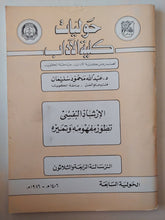 حوليات
كلية الآداب
د. عبدالله محمود سليمان
الإرشاد النفسي
تطور مفهومه وتميزه
الرسالة الرابعة والثلاثون
الحولية السابعة
١٤٠٦هـ - ١٩٨٦م